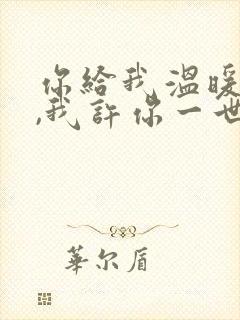 你給我溫暖
,我許你一世
華尔盾